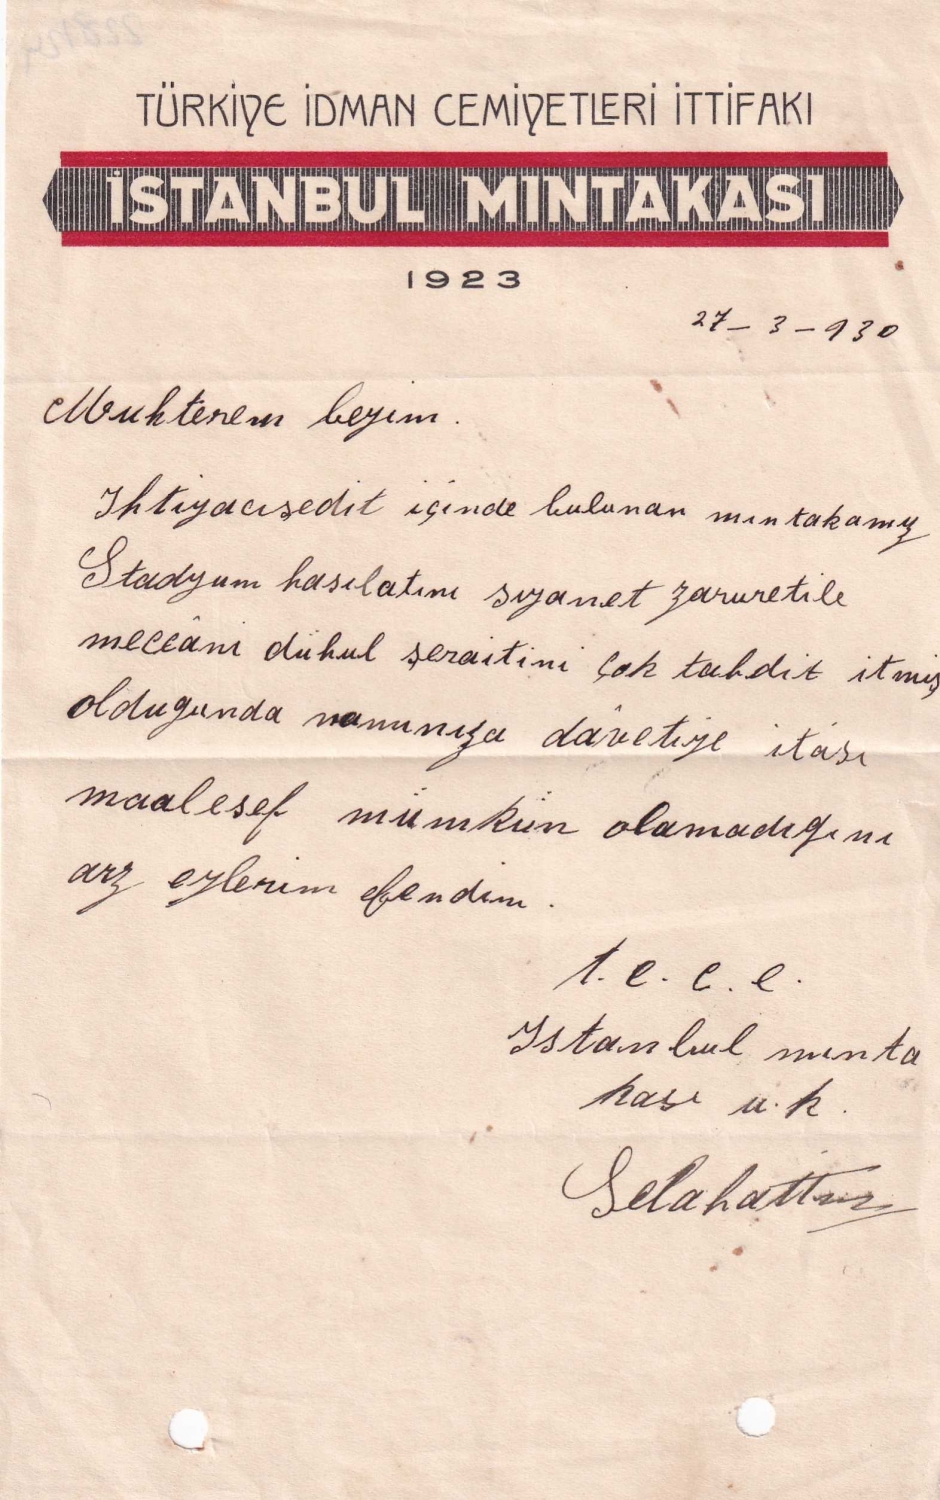 TÜRKİYE İDMAN CEMİYETLERİ İTTİFAKI
İSTANBUL MINTAKASI
1923
27-3-930
Muhterem beyim.
Ihtiyacışedit içinde bulunan mıntakamız
Stadyum hasılatını sıyanet zaruretile
meccâni dühul şeraitini çok tahdit itmiş
olduğunda namınıza dâvetiye itâsı
maalesef mümkün olamadığını
arz eylerim efendim.
t.e.c.e.
Istanbul mınta
kası u.k.
Selahattin